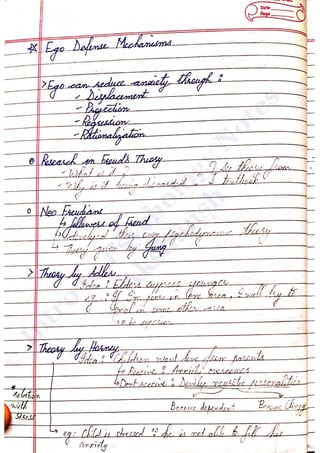 Date
Page
Ego Defense Mechanisms
> Ego can reduce anxiety through :
- Displacement
- Projection
- Regression
- Rationalization
Research on Freud's Theory
- What is it ? } See theory from
- Why is it being discarded - } textbook
Neo Freudians
↳ followers of Freud
↳ developed their own psychodynamic theory
↳ Theory given by Jung
> Theory by Adler
Idea : Elders suppress younger
eg : If I'm poor in one area, I will try to
in some other area
to be superior
> Theory by Horney
Idea : Children want love from parents
↳ Receive : Anxiety overcomes
↳ Dont receive : Develop neurotic personalities
* relation
with
stress
Become dependent
Become
eg: Child is stressed ∵ he is not able to his
anxiety